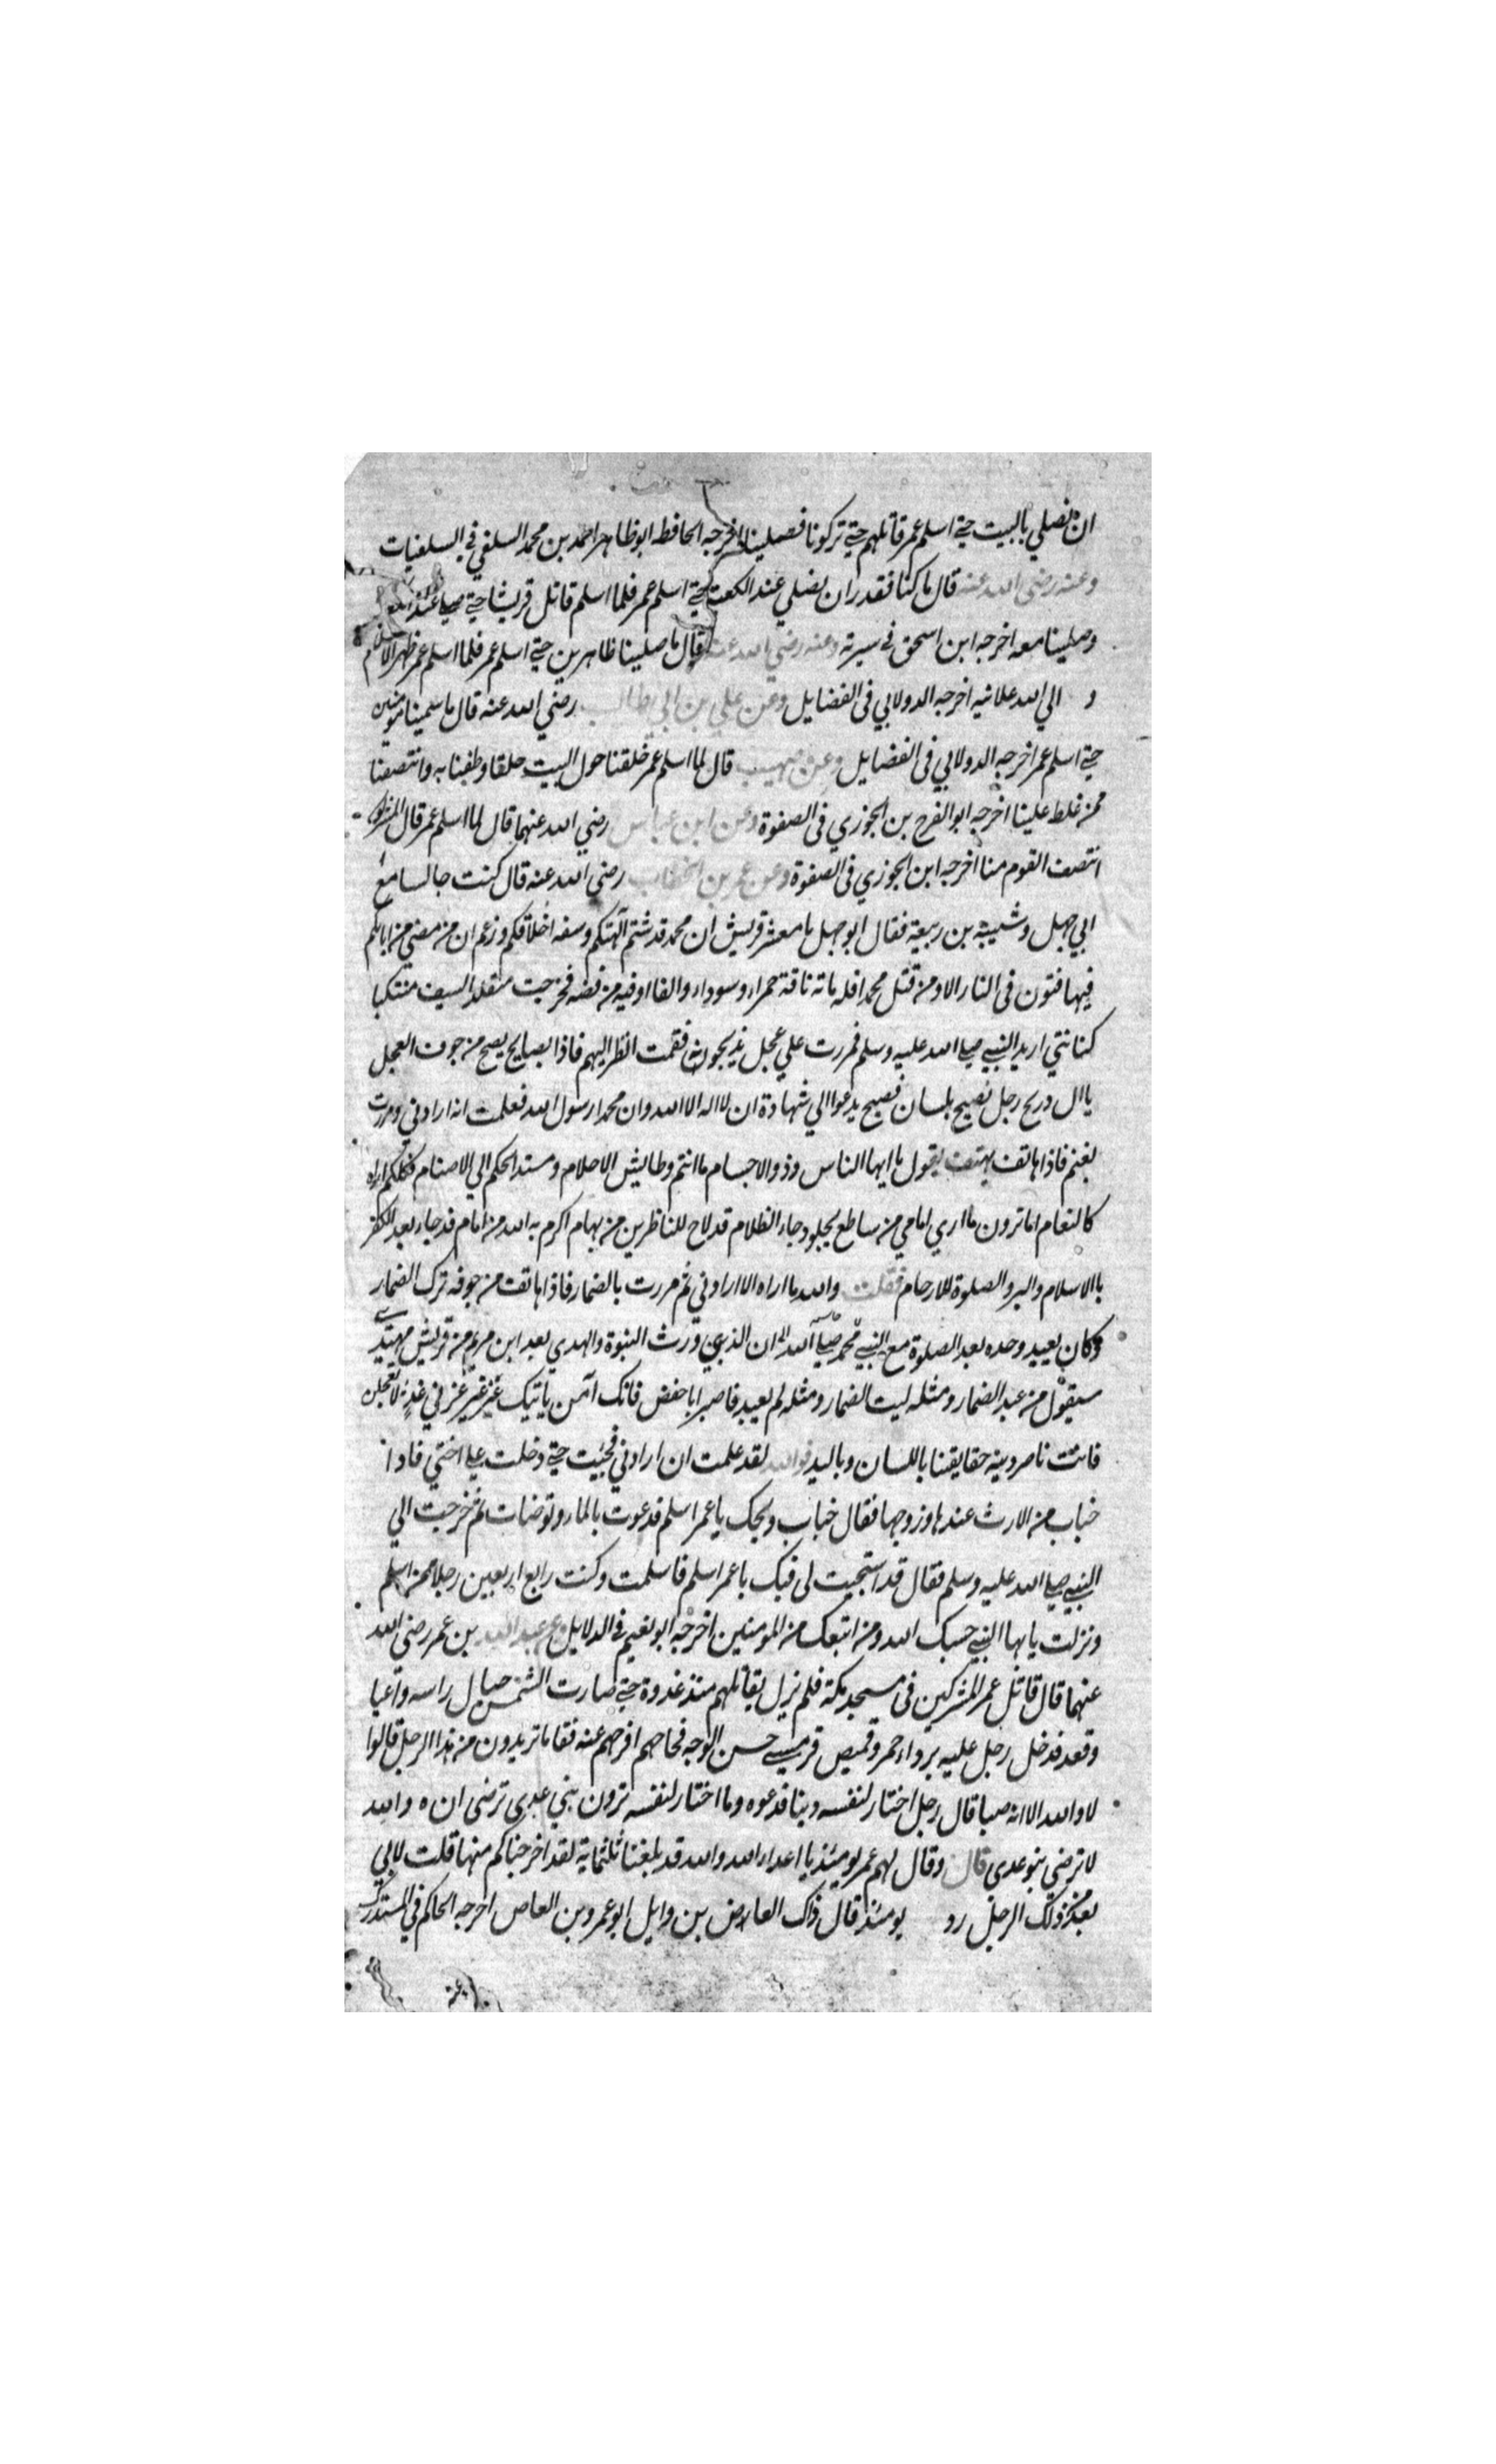 ان نصلي بالبيت حتي اسلم عمر قاتلهم حتي تركونا فصلينا اخرجه الحافظ ابو ظاهر احمد بن محمد السلفي في السلفيات
وعنه رضي الله عنه قال ما كنا فقدر ان نصلي عند الكعبة حتي اسلم عمر فلما اسلم قاتل قريشا حتي صلي عند
وصلينا معه اخرجه ابن اسحق في سيرته وعنه رضي الله عنه قال ما صلينا ظاهرين حتي اسلم عمر فلما اسلم عمر ظهر الاسلام
و الي الله علانيه اخرجه الدولابي في الفضايل وعن علي بن ابي طالب رضي الله عنه قال ما سمينا مومنين
حتي اسلم عمر اخرجه الدولابي في الفضايل وعن صهيب قال لما اسلم عمر خلقنا حول البيت حلقا وطفنا به وانتصفنا
ممن غلط علينا اخرجه ابو الفرح بن الجوزي في الصفوة وعن ابن عباس رضي الله عنهما قال لما اسلم عمر قال المشركون
انتصف القوم منا اخرجه ابن الجوزي في الصفوة وعن عمر بن الخطاب رضي الله عنه قال كنت جالسا مع
ابي جهل وشيبة بن ربيعة فقال ابو جهل يا معشر قريش ان محمد قد شتم آلهتكم وسفه اخلاقكم وزعم ان من مضي من ابايكم
فيهافتون في النار الا ومن قتل محمد افله ماته ناقة حمراء وسوداء والفا اوفيه من فضه فخرجت متقلد السيف منتكبا
كنانتي اريد النبي صلي الله عليه وسلم فمررت علي عجل يذبحونه فقمت انظر اليهم فاذا بصايح يصيح من جوف العجل
يا ال دريح رجل نصيح بلسان فصيح يدعوا الي شهادة ان لا اله الا الله وان محمدا رسول الله فعلمت انه ارادني ومررت
بغنم فاذا هاتف يهتف يقول يا ايها الناس وذوو الاجسام ما انتم وطايش الاحلام ومسند الحكم الي الاصنام فكلكم اراه
كالنعام اما ترون ما اري امامي من ساطع يجلود جاء الظلام قد لاح للناظرين من بهام اكرم به الله من امام قد جاء بعد الكفر
بالاسلام والبر والصلوة للارحام فقلت والله ما اراه الا ارادني ثم مررت بالضمار فاذا هاتف من جوفه ترك الضمار
وكان يعبيد وحده بعد الصلوة مع النبي محمد صلي الله ان الذي ورث النبوة والهدي بعد ابن مريم من قريش مهتدي
سيقول من عبد الضمار ومثله ليت الضمار ومثله لم يعبيد فاصبر ابا حفض فانك آمن ياتيك عز غير عز بني عدي لا تعجلن
فانت ناصر دينه حقايقنا باللسان وباليد فوالله لقد علمت ان ارادني فجيت حتي دخلت علي اختي فاذا
خباب من الارث عندها وزوجها فقال خباب ويحك يا عمر اسلم فدعوت بالماء وتوضات ثم خرجت الي
النبي صلي الله عليه وسلم فقال قد استجيت لي فيك يا عمر اسلم فاسلمت وكنت رابع اربعين رجلا ممن اسلم
ونزلت يا يها النبي حسبك الله ومن اتبعك من المومنين اخرجه ابو نعيم في الدلايل عن عبد الله بن عمر رضي الله
عنهما قال قاتل عمر المشركين في مسجد مكة فلم يزل يقاتلهم منذ غدوة حتي صارت الشمس حيال راسه واعيا
وقعد فدخل رجل عليه برداء احمر وقميص قومسي حسن الوجه فجاهم افرجهم عنه فقا ما تريدون من هذا الرجل قالوا
لا والله الا انه صبا قال رجل اختار لنفسه دينا فدعوه وما اختار لنفسه ترون بني عدي ترضي ان ه والله
لا ترضي بنو عدي قال وقال لهم عمر يوميذ يا اعداء الله والله قد بلغنا ثلثماية لقد اخرجناكم منها قلت لابي
بعد من ذلك الرجل رد يومئذ قال ذاك العاص بن وايل ابو عمرو بن العاص اخرجه الحاكم في المستدرك